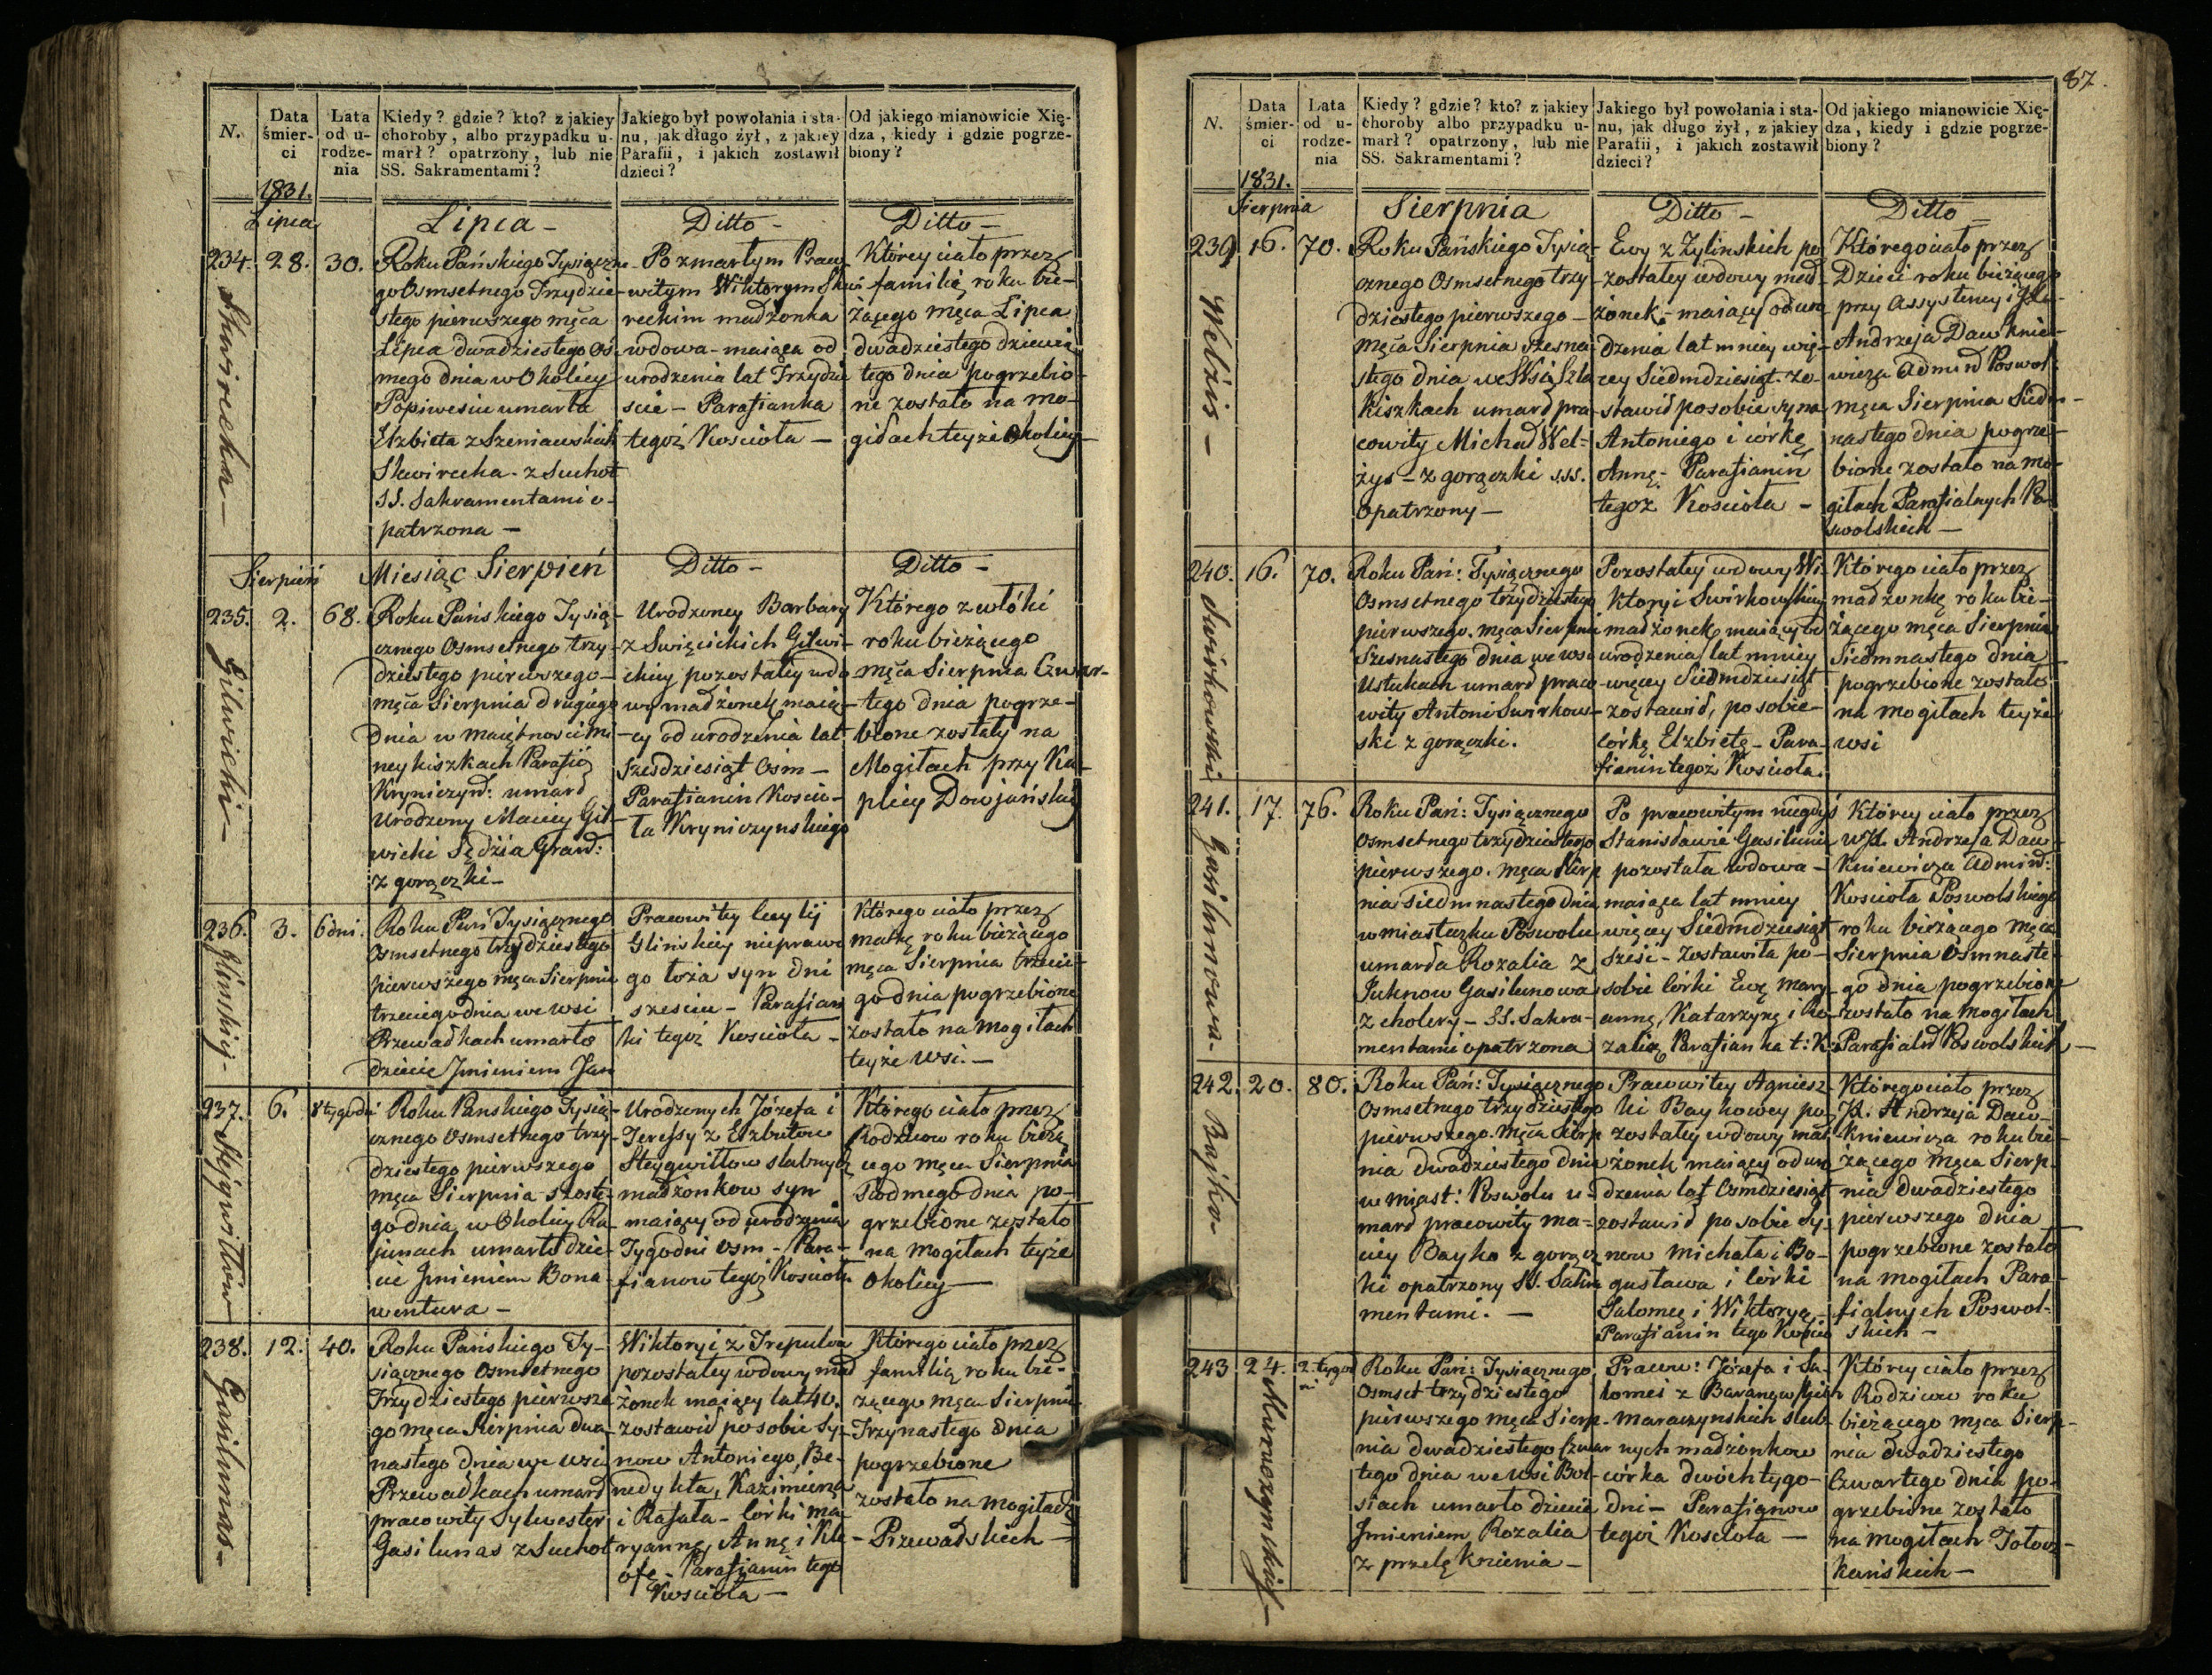 N.
Data śmier- ci
Lata od u- rodze- nia
Kiedy? gdzie? kto? z jakiey
choroby, albo przypadku u-
marł? opatrzony, lub nie
SS. Sakramentami?
Jakiego był powołania i sta-
nu, jak długo żył, z jakiey
Parafii, i jakich zostawił
dzieci?
Od jakiego mianowicie Xię-
dza, kiedy i gdzie pogrze-
biony?
1831.
Lipca
Lipca —
Ditto —
Ditto —
234.
28.
30.
Roku Pańskiego Tysiączne-
go Osmsetnego Trzydzie-
stego pierwszego męca
Lipca dwadziestego os-
mego dnia w Okolicy
Popiwesiu umarła
Elzbieta z Szeniawskich
Skwirecka - z Suchot
SS. Sakramentami o-
patrzona —
Po zmarłym Praco-
witym Wiktorym Skwi-
reckim madżonka
wdowa - maiąca od
urodzenia lat Trzydzie
scie - Parafianka
tegoż Koscioła —
Którey ciało przez
familię, roku bie-
żącego męca Lipca
dwadziestego dziewią
tego dnia pogrzebio-
ne zostało na mo-
giłach teyże Okolicy —
Skwirecka —
Sierpień
Miesiąc Sierpień
Ditto —
Ditto —
235.
2.
68.
Roku Pańskiego Tysią-
cznego Osmsetnego trzy-
dziestego pierwszego -
męca Sierpnia drugiego
dnia w maiętnosci
ney kiszkach Parafij
Kryniczyń: umarł
Urodzony Maciey Gil-
wicki Sędzia Grań:
z gorączki —
Urodzoney Barbary
z Swięcickich Gilwi-
ckiey pozostałey wdo-
wy madżonek maią-
cy od urodzenia lat
szesdziesiąt osm —
Parafianin Koscio-
ła Kryniczynskiego
Którego zwłóki
roku bieżącego
męca Sierpnia Czwar-
tego dnia pogrze-
bione zostały na
Mogiłach przy Ka-
plicy Dowjańskiey
Gilwicki —
236.
3.
6 dni.
Roku Pań Tysiącznego
Osmsetnego trzydziestego
pierwszego męca Sierpnia
trzeciego dnia we wsi
Przewadkach umarło
dziecie Jmieniem Jan
Pracowitey Cecylij
Glińskiey nieprawe
go łoża syn dni
szesciu - Parafian
ki tegoż Koscioła —
Którego ciało przez
matkę roku bieżącego
męca Sierpnia trzecie-
go dnia pogrzebione
zostało na mogiłach
teyże wsi. —
Glińskiey —
237.
6.
8 tygodni
Roku Pańskiego Tysią-
cznego Osmsetnego trzy-
dziestego pierwszego
męca Sierpnia szoste-
go dnia w Okolicy Ra-
junach umarło dzie-
cie Jmieniem Bona-
wentura —
Urodzonych Józefa i
Teressy z Elzbutow
Steygwiłłow slubnych
madżonkow syn
maiący od urodzenia
Tygodni osm - Para-
fianow tegoż Koscioła
Którego ciało przez
Rodzicow roku bieżą
cego męca Sierpnia
siodmego dnia po-
grzebione zostało
na mogiłach teyże
Okolicy —
Steygwiłłów
238.
12.
40.
Roku Pańskiego Ty-
siącznego Osmsetnego
Trzydziestego pierwsze
go męca Sierpnia dwa-
nastego dnia we wsi
Przewadkach umarł
pracowity Sylwester
Gasilunas z Suchot
Wiktoryi z Trepulow
pozostałey wdowy mad
żonek maiący lat 40.
zostawił po sobie Sy-
now Antoniego, Be-
nedykta, Kazimierza
i Rafała - Córki Ma-
ryannę, Annę i Kle-
ofę - Parafianin tego
Koscioła —
Którego ciało przez
familią roku bie-
żącego męca Sierpnia
Trzynastego dnia
pogrzebione
zostało na mogiłach
Przewadskich —
Gasilunas —
87.
N.
Data śmier- ci
Lata od u- rodze- nia
Kiedy? gdzie? kto? z jakiey
choroby albo przypadku u-
marł? opatrzony, lub nie
SS. Sakramentami?
Jakiego był powołania i sta-
nu, jak długo żył, z jakiey
Parafii, i jakich zostawił
dzieci?
Od jakiego mianowicie Xię-
dza, kiedy i gdzie pogrze-
biony?
1831.
Sierpnia
Sierpnia
Ditto —
Ditto —
239.
16.
70.
Roku Pańskiego Tysią-
cznego Osmsetnego trzy-
dziestego pierwszego —
męca Sierpnia szesna-
stego dnia we Wsi Szla
Kiszkach umarł pra-
cowity Michał Wel-
żys - z gorączki SSS.
opatrzony —
Ewy z Zylinskich po-
zostałey wdowy mad-
żonek - maiący od uro-
dzenia lat mniey wię-
cey Siedmdziesiąt. zo-
stawił po sobie syna
Antoniego i córkę
Annę. Parafianin
tegoż Koscioła —
Którego ciało przez
Dzieci roku bieżącego
przy Assystencyi
Andrzeja Dawknie-
wicza Admin Poswol:
męca Sierpnia Siedm-
nastego dnia pogrze-
bione zostało na mo-
giłach Parafialnych Po-
swolskich —
Welzis —
240.
16.
70.
Roku Pań: Tysiącznego
Osmsetnego trzydziestego
pierwszego męca Sierpnia
Szesnastego dnia we wsi
Ustukach umarł praco-
wity Antoni Swirkow-
ski z gorączki.
Pozostałey wdowy Wi-
ktoryi Swirkowskiey
madżonek maiący od
urodzenia lat mniey
więcey Siedmdziesiąt
zostawił, po sobie
córkę Elzbietę - Para-
fianin tegoż Koscioła.
Którego ciało przez
madżonkę roku bie-
żącego męca Sierpnia
Siedmnastego dnia
pogrzebione zostało
na mogiłach teyże
wsi
Swirkowski
241.
17.
76.
Roku Pań: Tysiącznego
Osmsetnego trzydziestego
pierwszego. męca Sierp
nia Siedmnastego dnia
w miasteczku Poswolu
umarła Rozalia z
Juknow Gasilunowa
z cholery - SS. Sakra-
mentami opatrzona
Po pracowitym niegdyś
Stanisławie Gasilunie
pozostała wdowa -
maiąca lat mniey
więcey Siedmdziesiąt
szesć - zostawiła po-
sobie Córki Ewę Mary-
annę, Katarzynę i Ro-
zalią Parafianka t: K:
Którey ciało przez
WJX. Andrzeja Daw-
kniewicza Admin:
Koscioła Poswolskiego
roku bieżącego męca
Sierpnia Osmnaste-
go dnia pogrzebione
zostało na mogiłach
Parafialn Poswolskich —
Gasilunowa —
242.
20.
80.
Roku Pań: Tysiącznego
Osmsetnego trzydziestego
pierwszego. męca Sierp
nia dwadziestego dnia
w miast: Poswolu u-
marł pracowity Ma-
ciey Bayko z gorącz
ki opatrzony SS. Sakra
mentami. —
Pracowitey Agniesz-
ki Baykowey po-
zostałey wdowy mał-
żonek maiący od uro
dzenia lat Osmdziesiąt
zostawił po sobie Sy-
now Michała i Bo-
gusława i Córki
Salomeę i Wiktoryą -
Parafianin tego Koscio
Którego ciało przez
JX. Andrzeja Daw-
kniewicza roku bie-
żącego męca Sierp-
nia dwadziestego
pierwszego dnia
pogrzebione zostało
na mogiłach Para-
fialnych Poswol-
skich —
Bajko —
243
24.
2. tygod
ni
Roku Pań: Tysiącznego
Osmset trzydziestego
pierwszego męca Sierp-
nia dwadziestego Czwar
tego dnia we wsi Bot-
siach umarło dziecie
Jmieniem Rozalia
z przelęknienia —
Pracow: Józefa i Sa-
lomei z Baranowskich
Maraczynskich slub-
nych madżonkow
córka dwóch tygo-
dni - Parafianow
tegoż Koscioła —
Którey ciało przez
Rodzicow roku
bieżącego męca Sierp-
nia dwadziestego
Czwartego dnia po-
grzebione zostało
na mogiłach
kańskich —